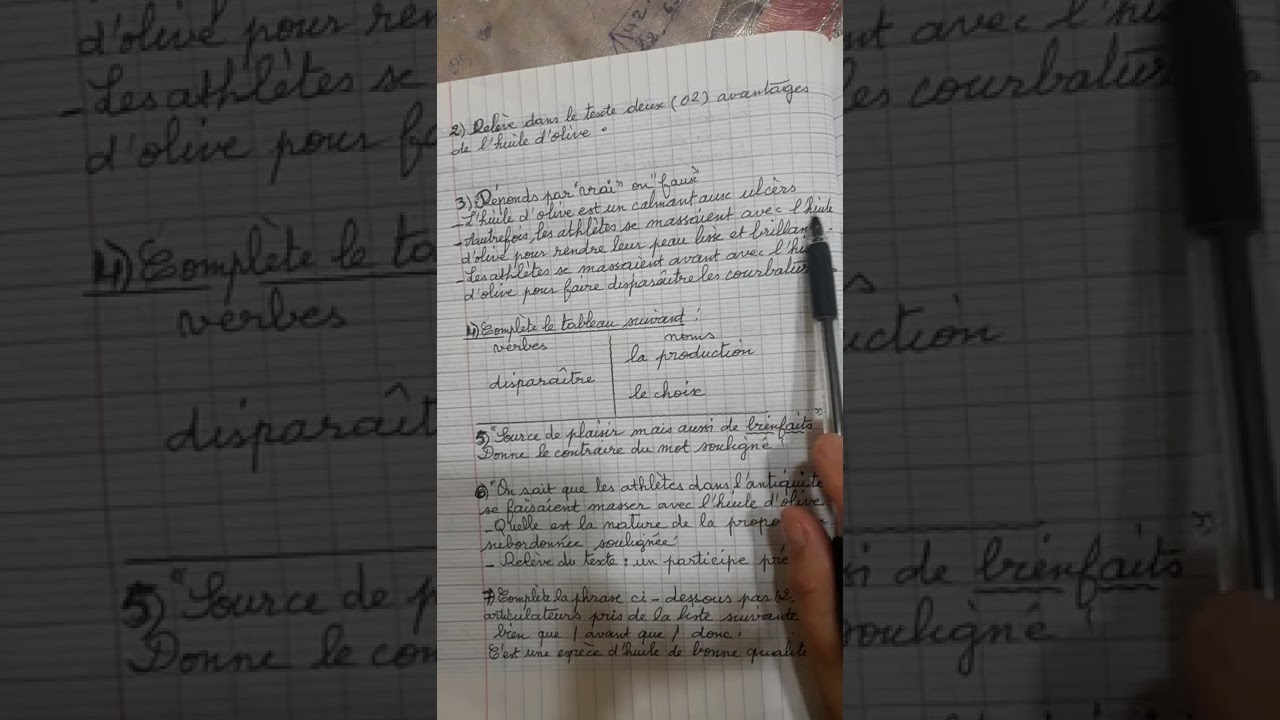 2) Relève dans le texte deux (02) avantages
de l'huile d'olive.
3) Réponds par "vrai" ou "faux"
- L'huile d'olive est un calmant aux ulcèrs
- Autrefois, les athlètes se massaient avec l'huile
d'olive pour rendre leur peau lisse et brillan
- Les athlètes se massaient avant avec l'hu
d'olive pour faire disparaître les courbatu
4) Complète le tableau suivant :
verbes noms
la production
disparaître
le choix
5) "Source de plaisir mais aussi de bienfaits"
Donne le contraire du mot souligné
6) "On sait que les athlètes dans l'antiquité
se faisaient masser avec l'huile d'olive
- Quelle est la nature de la propo
subordonnée soulignée?
- Relève du texte : un participe pré
7) Complète la phrase ci-dessous par
articulateurs pris de la liste suivante
bien que / avant que / donc.
C'est une espèce d'huile de bonne qualité